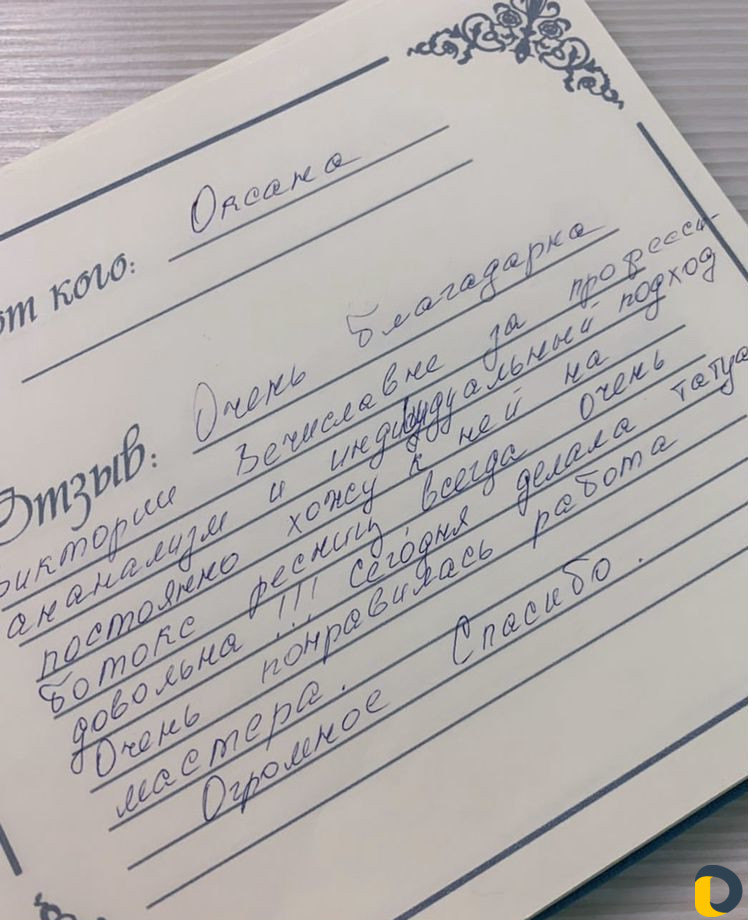 от кого: Оксана
Отзыв: Очень благадарна
Виктории Вечиславне за професси-
ананализм и индивудуальный подход
постоянно хожу к ней на
ботокс ресниц, всегда очень
довольна !!! сегодня делала татуа
Очень понравилась работа
мастера.
Огромное Спасибо.